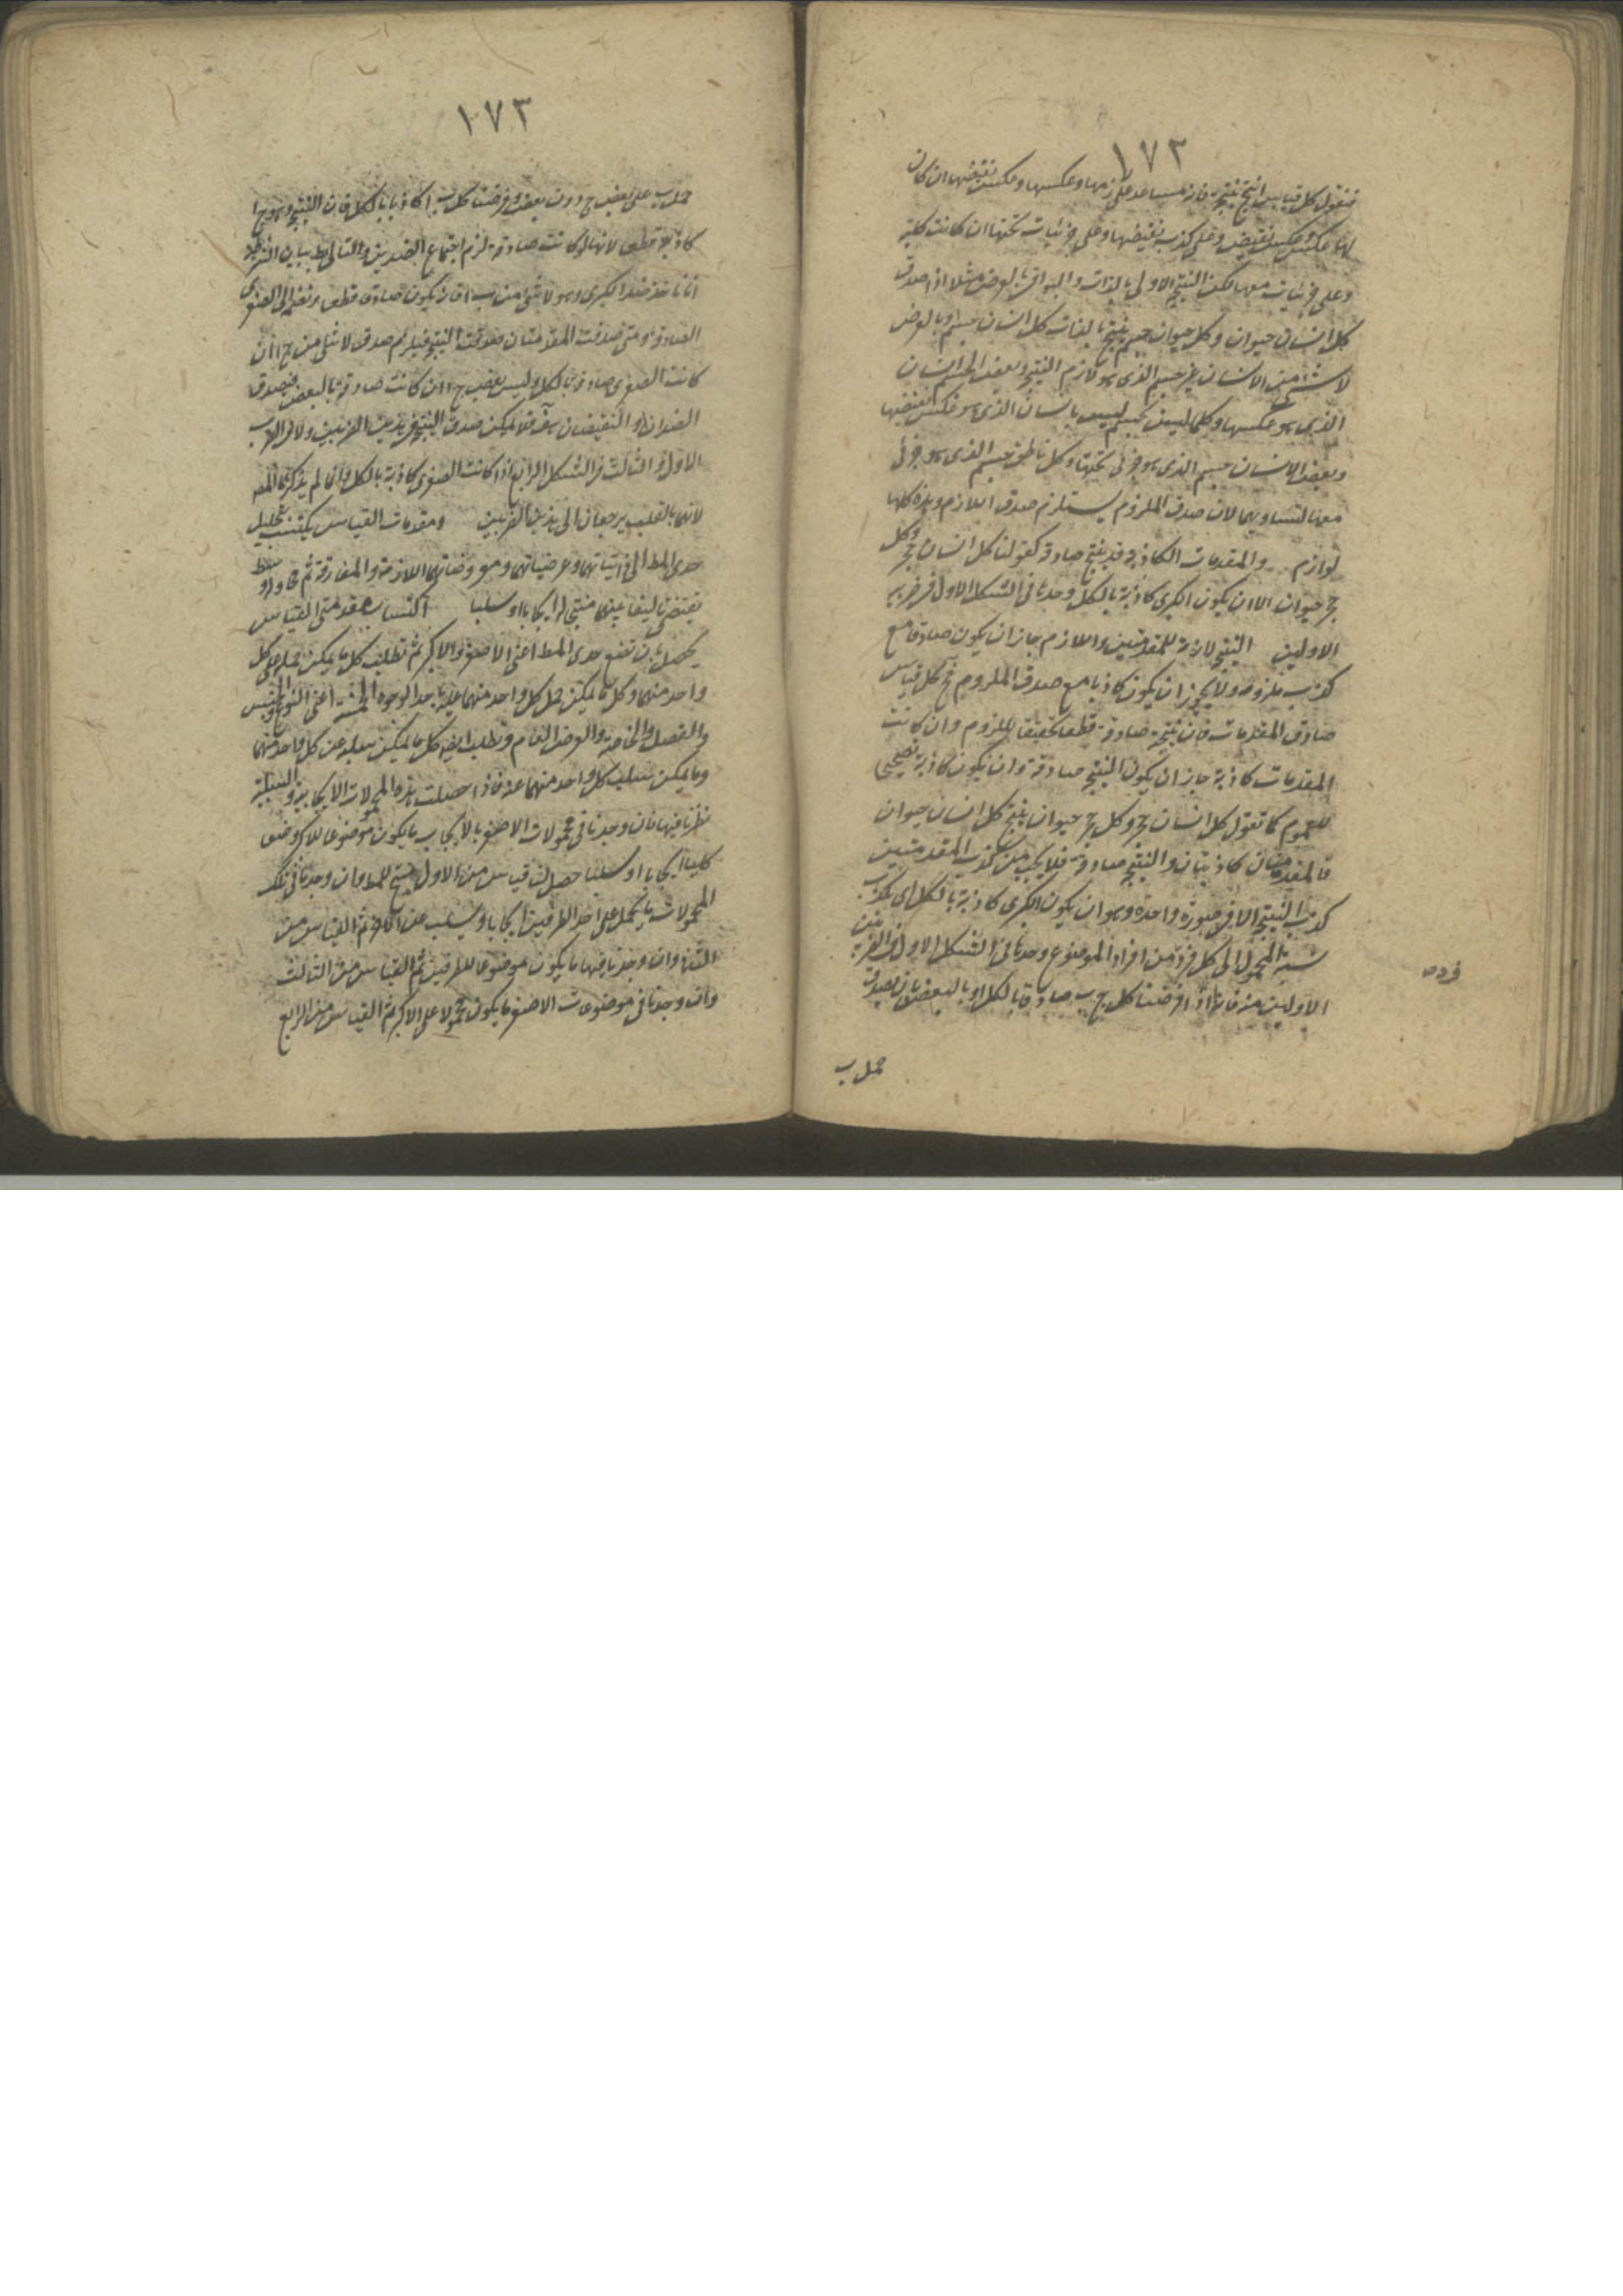 ١٧٢
فنقول كل قياس انتج نتيجة فانه يساعد على لازمها وعكسها وعكس نقيضها ان كان
لها عكس وعكس نقيض وعلى كذب نقيضها وعلى جزئيات تحتها ان كانت كلية
وعلى جزئيات معها لكن النتيجة الاولى بالذات والبواقى بالعرض مثلا اذا صدق
كل انسان حيوان وكل حيوان جسم ينتج بالذات كل انسان جسم وبالعرض
لا شئ من الانسان غير جسم الذى هو لازم النتيجة وبعض الجسم انسان
الذى هو عكسها وكل ما ليس بجسم ليس بانسان الذى هو عكس نقيضها
وبعض الانسان جسم الذى هو جزئى تحتها وكل ناطق جسم الذى هو جزئى
معها لتساويهما لان صدق الملزوم يستلزم صدق اللازم وهذه كلها
لوازم والمقدمات الكاذبة قد ينتج صادقة كقولنا كل انسان حجر وكل
حجر حيوان الا ان يكون الكبرى كاذبة بالكل وحدها فى الشكل الاول فى ضربيه
الاولين النتيجة لازمة للمقدمتين واللازم جاز ان يكون صادقا مع
كذب ملزومه ولا يجوز ان يكون كاذبا مع صدق الملزوم فح كل قياس
صادق المقدمات فان نتيجته صادقة قطعا تحقيقا للزوم وان كانت
المقدمات كاذبة جاز ان يكون النتيجة صادقة وان يكون كاذبة
للعموم كما تقول كل انسان حجر وكل حجر حيوان ينتج كل انسان حيوان
فالمقدمتان كاذبتان والنتيجة صادقة فلا يجب من كذب المقدمتين
كذب النتيجة الا فى صورة واحدة وهو ان يكون الكبرى كاذبة بالكل اى يكذب
نسبة المحمول الى كل فرد من افراد الموضوع وحدها فى الشكل الاول فى الضربين
الاولين منه فانا اذا فرضنا كل ج ب صادقا بالكل او بالبعض بان يصدق
حمل ب
١٧٣
حمل ب على بعض ج دون بعض وفرضنا كل ب ا كاذبا بالكل فان النتيجة وهو ج ا
كاذبة قطعا لانها لو كانت صادقة لزم اجتماع الضدين والتالى بط بيان الشرطية
انا ناخذ ضد الكبرى وهو لا شئ من ب ا فانه يكون صادقا قطعا ونضمه الى الصغرى
الصادقة ومتى صدقت المقدمتان صدقت النتيجة فيلزم صدق لا شئ من ج ا ان
كانت الصغرى صادقة بالكل وليس بعض ج ا ان كانت صادقة بالبعض فيصدق
الضدان او النقيضان هف فلا يمكن صدق النتيجة فى هذين الضربين ولا فى الضرب
الاول والثالث فى الشكل الرابع اذا كانت الصغرى كاذبة بالكل وانما لم يذكرهما المصنف
لانهما بالقلب يرجعان الى هذين الضربين ومقدمات القياس يكتسب بتحليل
حدى المط الى ذاتياتهما وعرضياتهما ومعروضاتهما اللازمة والمفارقة ثم
يقتضى تاليفا بينهما منتجا له ايجابا او سلبا اكتساب مقدمتى القياس
يحصل بان نضع حدى المط اعنى الاصغر والاكبر ثم نطلب كل ما يمكن حمله على كل
واحد منهما وكل ما يمكن حمل كل واحد منهما عليه باحد الوجوه الخمسة اعنى النوع والجنس
والفصل والخاصة والعرض العام ونطلب ايضا كل ما يمكن سلبه عن كل واحد منهما
وما يمكن سلب كل واحد منهما عنه فاذا حصلت هذه المحمولات الايجابية والسلبية
نظرنا فيها فان وجدنا فى محمولات الاصغر بالايجاب ما يكون موضوعا للاكبر وضعا
كليا ايجابا او سلبا حصل لنا قياس من الاول منتج للمط وان وجدنا فى تلك
المحمولات ما يحمل على احد الطرفين ايجابا ويسلب عن الاخر تم القياس من
الثانى وان وجدنا فيها ما يكون موضوعا للطرفين تم القياس من الثالث
وان وجدنا فى موضوعات الاصغر ما يكون محمولا على الاكبر تم القياس من الرابع